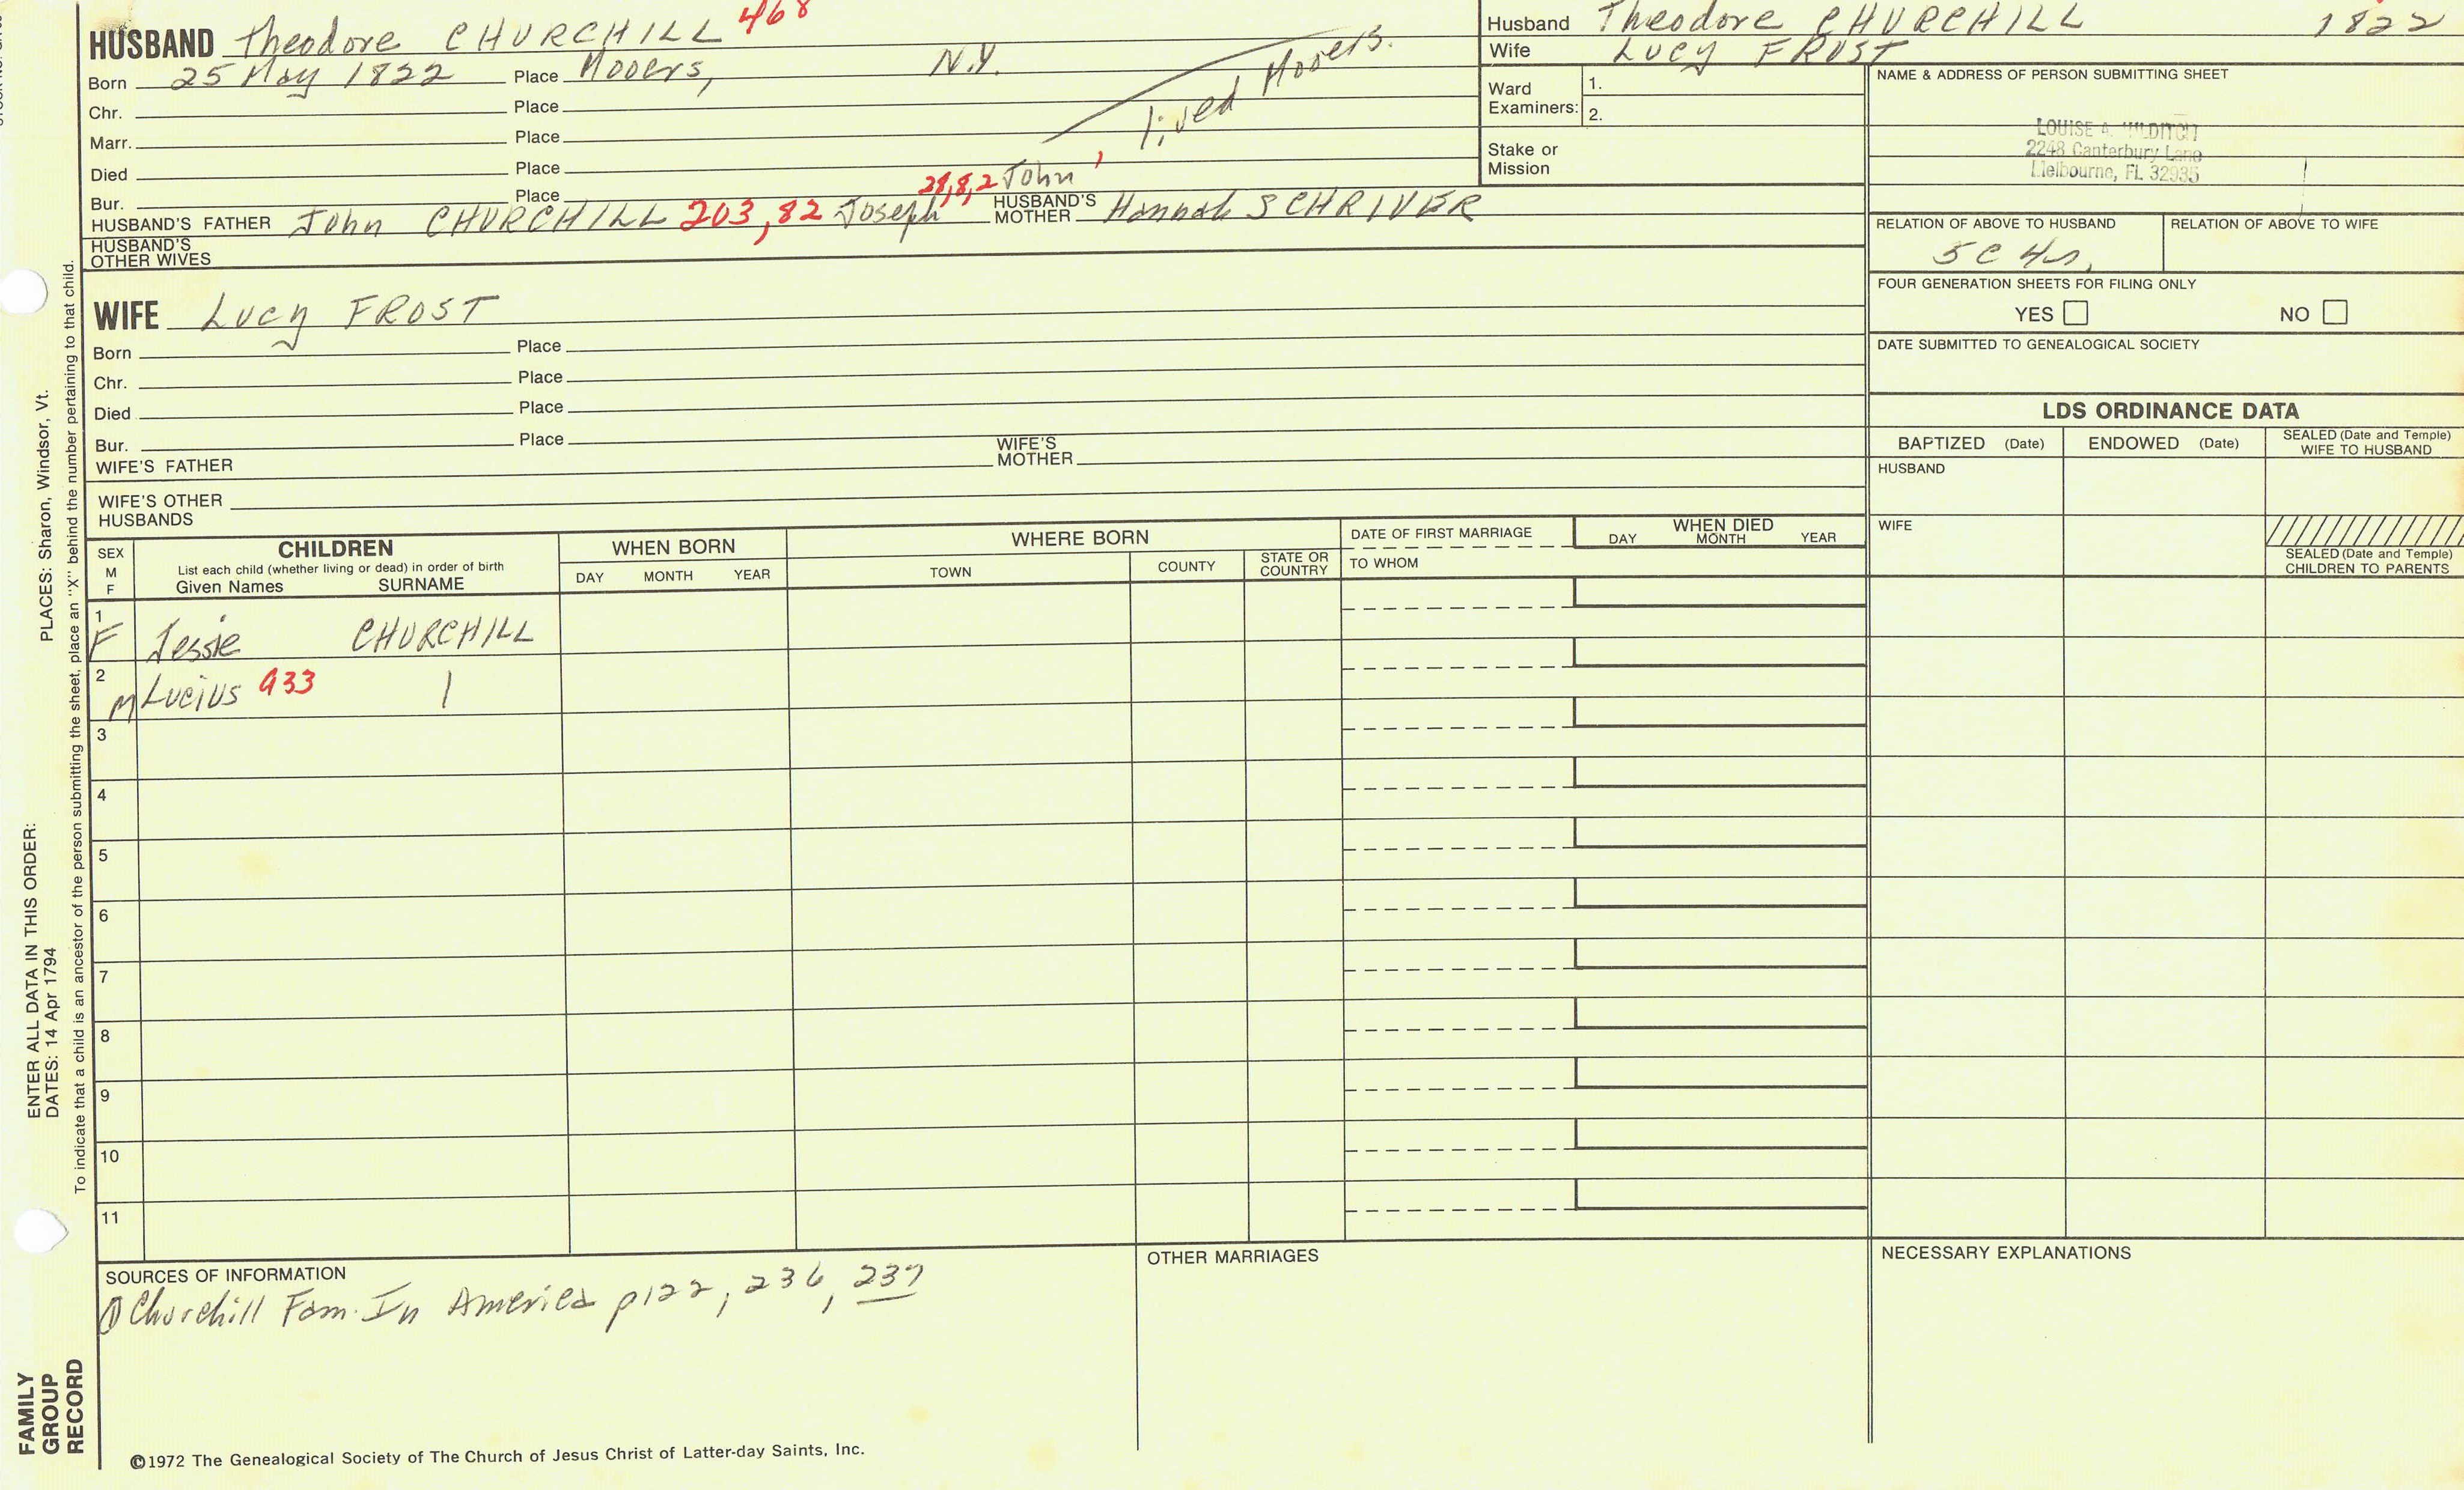 HUSBAND Theodore CHURCHILL 468
Born 25 May 1822 Place Mooers, N.Y.
Chr. Place
Marr. Place
Died Place
lived Mooers.
Bur. Place
28,8,2 John 1
HUSBAND'S FATHER John CHURCHILL 203,82 Joseph HUSBAND'S MOTHER Hannah SCHRIVER
HUSBAND'S OTHER WIVES
WIFE Lucy FROST
Born Place
Chr. Place
Died Place
Bur. Place
WIFE'S FATHER WIFE'S MOTHER
WIFE'S OTHER HUSBANDS
Husband Theodore CHURCHILL 1822
Wife Lucy FROST
Ward Examiners: 1.
2.
Stake or Mission
NAME & ADDRESS OF PERSON SUBMITTING SHEET
LOUISE A.
2248 Canterbury Lane
Melbourne, FL 32935
RELATION OF ABOVE TO HUSBAND RELATION OF ABOVE TO WIFE
5C
FOUR GENERATION SHEETS FOR FILING ONLY
YES NO
DATE SUBMITTED TO GENEALOGICAL SOCIETY
LDS ORDINANCE DATA
BAPTIZED (Date) ENDOWED (Date) SEALED (Date and Temple) WIFE TO HUSBAND
HUSBAND
WIFE
SEALED (Date and Temple) CHILDREN TO PARENTS
SEX M F
CHILDREN
List each child (whether living or dead) in order of birth
Given Names SURNAME
WHEN BORN
DAY MONTH YEAR
WHERE BORN
TOWN COUNTY STATE OR COUNTRY
DATE OF FIRST MARRIAGE
TO WHOM
WHEN DIED
DAY MONTH YEAR
1 F Jessie CHURCHILL
2 M Lucius 933 |
3
4
5
6
7
8
9
10
11
SOURCES OF INFORMATION
① Churchill Fam. In America p122, 236, 237
OTHER MARRIAGES
NECESSARY EXPLANATIONS
©1972 The Genealogical Society of The Church of Jesus Christ of Latter-day Saints, Inc.
ENTER ALL DATA IN THIS ORDER:
DATES: 14 Apr 1794 PLACES: Sharon, Windsor, Vt.
To indicate that a child is an ancestor of the person submitting the sheet, place an "X" behind the number pertaining to that child.
FAMILY
GROUP
RECORD